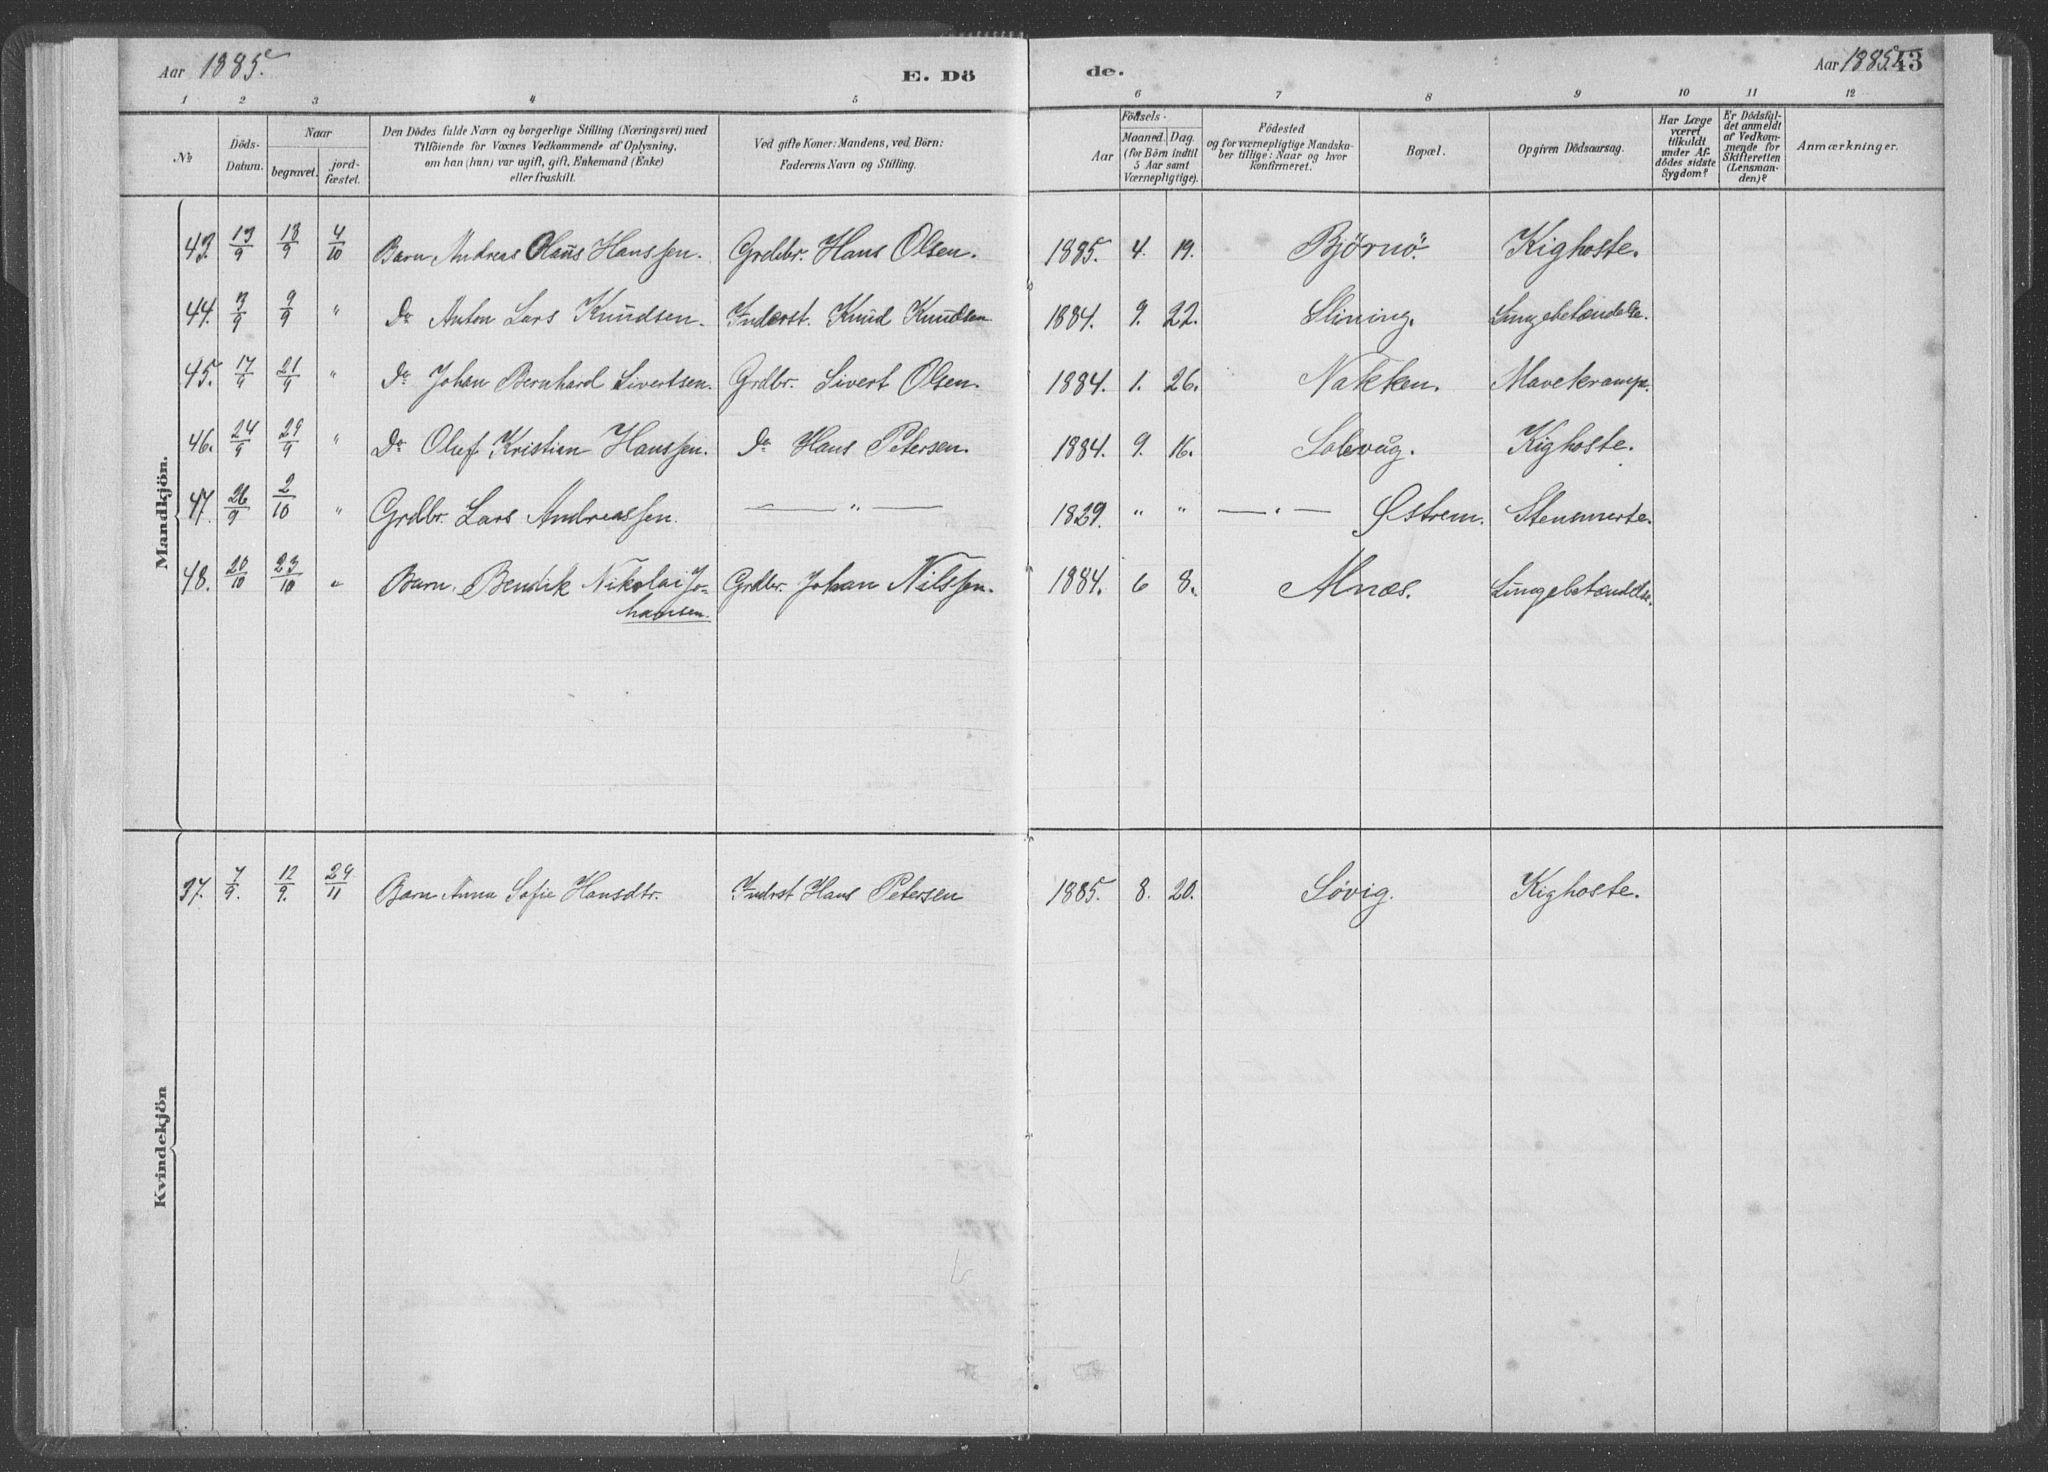 Aar 1885. E. Dö de. Aar 1885. 43
1 2 3 4 5 6 7 8 9 10 11 12
No Döds-Datum. Naar begravet. jord-fæstet. Den Dödes fulde Navn og borgerlige Stilling (Næringsvei) med Tilföiende for Voxnes Vedkommende af Oplysning, om han (hun) var ugift, gift, Enkemand (Enke) eller fraskilt. Ved gifte Koner: Mandens, ved Börn: Faderens Navn og Stilling. Födsels- Aar Maaned. Dag. (for Börn indtil 5 Aar samt Værnepligtige). Födested og for værnepligtige Mandskaber tillige: Naar og hvor konfirmeret. Bopæl. Opgiven Dödsaarsag. Har Læge været tilkaldt under Afdödes sidste Sygdom? Er Dödsfaldet anmeldt af Vedkommende for Skifteretten (Lensmanden)? Anmærkninger.
Mandkjön.
43. 13/9 18/9 4/10 Barn Andreas Olaus Hanssen. Grdbr. Hans Olsen. 1885. 4. 19. Bjørnö. Kighoste.
44. 3/9 9/9 " Do Anton Lars Knudsen. Inderst. Knud Knudsen 1884. 9. 22. Slining. Lungebetændelse.
45. 17/9 21/9 " Do Johan Bernhard Sivertsen. Grdbr. Sivert Olsen. 1884. 1. 26. Nakken. Mavekrampe.
46. 24/9 29/9 " Do Oluf Kristian Hanssen. Do Hans Petersen. 1884. 9. 16. Solevåg. Kighoste.
47. 26/9 2/10 " Grdbr. Lars Andreassen. — " — 1829. " " — " — Østrem. Stensmerte.
48. 20/10 23/10 " Barn. Bendik Nikolai Jo- Grdbr. Johan Nilssen. 1884. 6 8. Alnæs. Lungebetændelse.
hansen.
Kvindekjön
37. 7/9. 12/9. 29/11 Barn Anna Sofie Hansdtr. Inderst Hans Petersen 1885. 8. 20. Søvig. Kighoste.